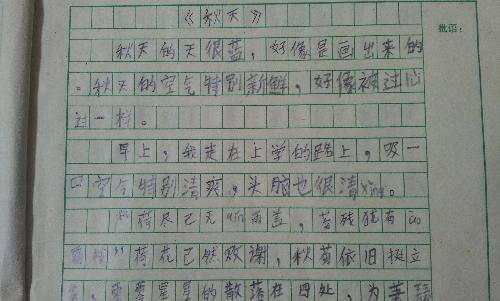 《秋天》
批语：
秋天的天很蓝，好像是画出来的
。秋天的空气特别新鲜，好像被过沁
过一样。
早上，我走在上学的路上，吸一
口空气特别清爽，头脑也很清xing。
“荷尽已无qin雨盖，菊残犹有
”荷花已然败谢，秋菊依旧挺立
星星的散落在四处，为